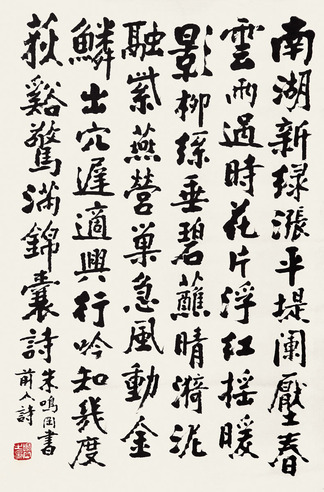 南湖新绿漲平堤闌壓春
雲雨過時花片浮红摇暖
影柳絲垂碧蘸晴漪泥
融紫燕營巢急風動金
鱗出穴遲適興行吟知幾度
荻谿驚满錦囊詩
朱鳴岡書
前人詩